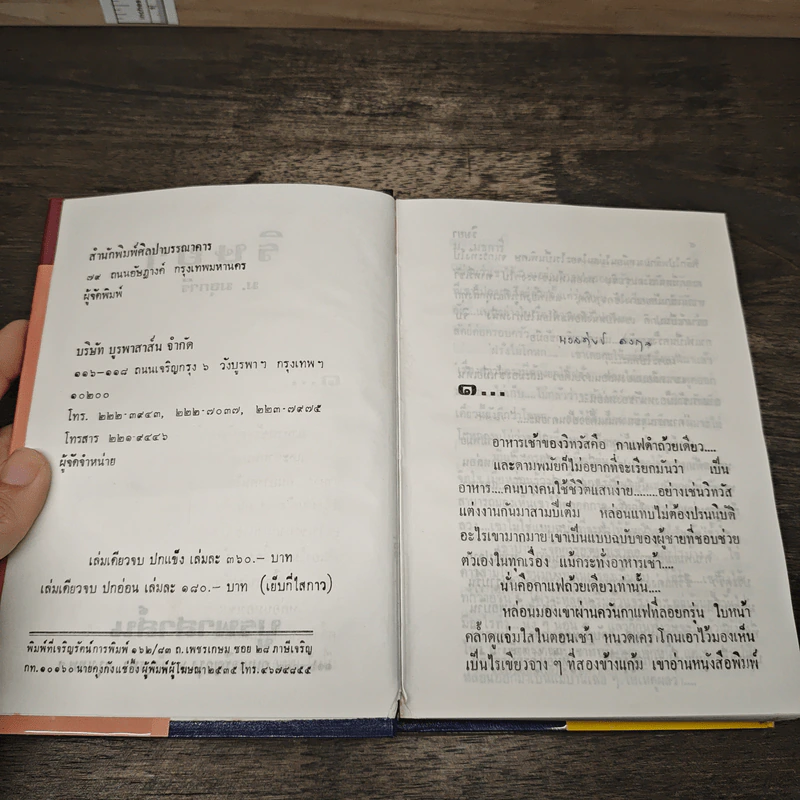 สำนักพิมพ์ศิลปาบรรณาคาร
๗๙ ถนนอัษฎางค์ กรุงเทพมหานคร
ผู้จัดพิมพ์
บริษัท บูรพาสาส์น จำกัด
๑๑๖-๑๑๘ ถนนเจริญกรุง ๖ วังบูรพาฯ กรุงเทพฯ
๑๐๒๐๐
โทร. ๒๒๒-๓๙๔๓, ๒๒๒-๗๐๓๗, ๒๒๓-๗๙๗๕
โทรสาร ๒๒๑-๙๔๔๖
ผู้จัดจำหน่าย
เล่มเดียวจบ ปกแข็ง เล่มละ ๓๖๐.- บาท
เล่มเดียวจบ ปกอ่อน เล่มละ ๑๘๐.- บาท (เย็บกี่ไสกาว)
พิมพ์ที่เจริญรัตน์การพิมพ์ ๑๖๒/๘๓ ถ.เพชรเกษม ซอย ๒๘ ภาษีเจริญ
กท.๑๐๑๖๐ นายคุงกังแซ่อึ้ง ผู้พิมพ์ผู้โฆษณา ๒๕๓๕ โทร.๔๖๗๔๘๕๕
๑...
อาหารเช้าของวิทวัสคือ กาแฟดำถ้วยเดียว....
และตามพมัยก็ไม่อยากที่จะเรียกมันว่า เป็น
อาหาร....คนบางคนใช้ชีวิตแสนง่าย........อย่างเช่นวิทวัส
แต่งงานกันมาสามปีเต็ม หล่อนแทบไม่ต้องปรนนิบัติ
อะไรเขามากมาย เขาเป็นแบบฉบับของผู้ชายที่ชอบช่วย
ตัวเองในทุกเรื่อง แม้กระทั่งอาหารเช้า....
นั่นคือกาแฟถ้วยเดียวเท่านั้น....
หล่อนมองเขาผ่านควันกาแฟที่ลอยกรุ่น ใบหน้า
คล้ำดูแจ่มใสในตอนเช้า หนวดเคราโกนเอาไว้มองเห็น
เป็นไรเขียวจาง ๆ ที่สองข้างแก้ม เขาอ่านหนังสือพิมพ์